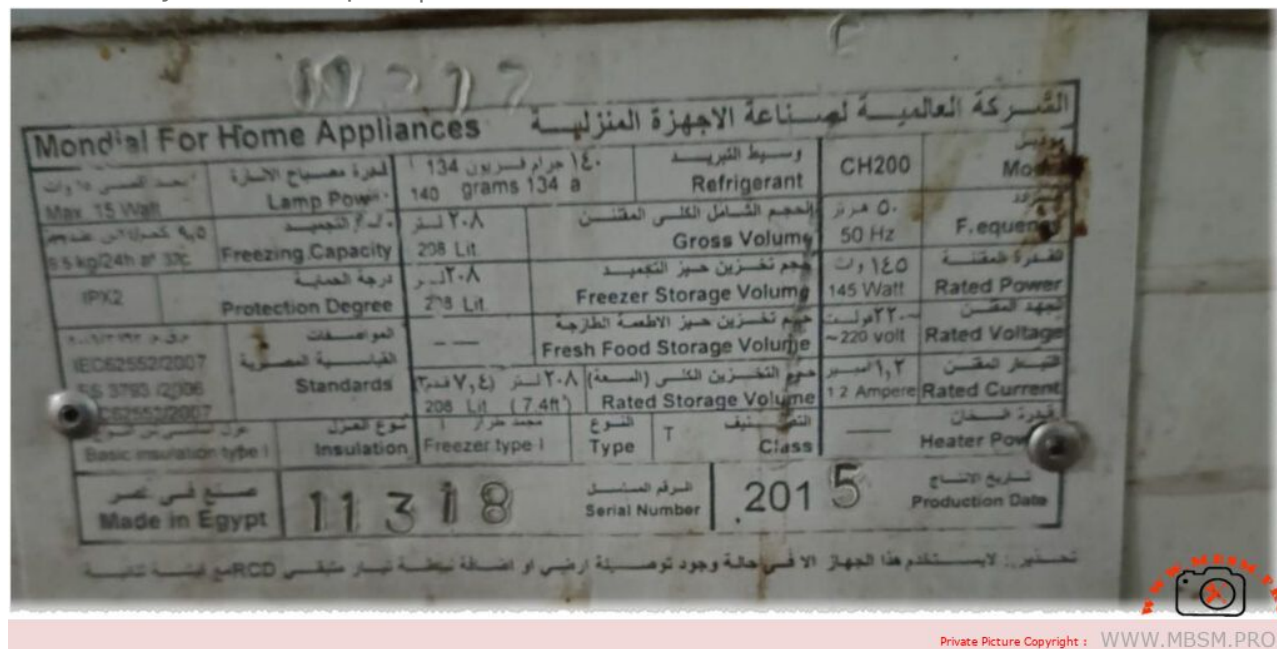 Mondial For Home Appliances الشركة العالمية لصناعة الاجهزة المنزلية
Max. 15 Watt قدرة مصباح الانارة Lamp Power ١٤٠ جرام فريون 134 أ 140 grams 134 a وسيط التبريد Refrigerant CH200 موديل
kg/24h at Freezing Capacity ٢٠٨ لتر 208 Lit الحجم الشامل الكلى المقنن Gross Volume ٥٠ هرتز 50 Hz التردد Frequency
IPX2 درجة الحماية Protection Degree ٢٠٨ لتر 208 Lit حجم تخزين حيز التجميد Freezer Storage Volume ١٤٥ وات 145 Watt القدرة المقننة Rated Power
المواصفات القياسية المصرية Standards -- حجم تخزين حيز الاطعمة الطازجة Fresh Food Storage Volume ~٢٢٠ فولت ~220 volt الجهد المقنن Rated Voltage
IEC62552/2007
ES 3793 /2006
IEC62552/2007
٢٠٨ لتر (٧,٤ قدم٣) 208 Lit (7.4ft³) حجم التخزين الكلى (السعة) Rated Storage Volume ١,٢ امبير 1.2 Ampere التيار المقنن Rated Current
Basic insulation type I نوع العزل Insulation مجمد طراز I Freezer type I النوع Type T التصنيف Class — قدرة السخان Heater Power
صنع في مصر Made in Egypt 11318 الرقم المسلسل Serial Number 2015 تاريخ الانتاج Production Date
تحذير: لايستخدم هذا الجهاز الا في حالة وجود توصيلة ارضي او اضافة نبيطة تيار متبقي RCD مع
Private Picture Copyright : WWW.MBSM.PRO
WWW.MBSM.PRO